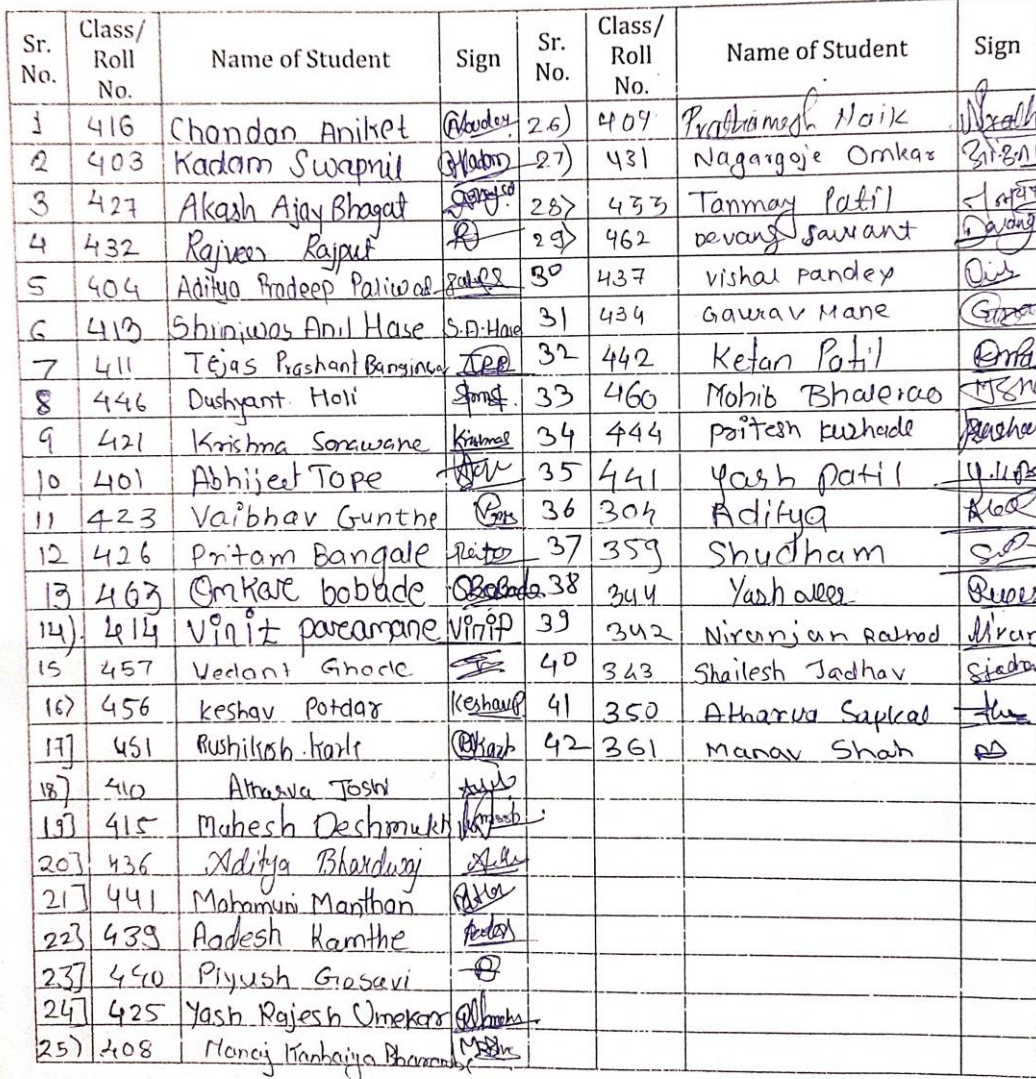 Sr. No. Class/ Roll No. Name of Student Sign Sr. No. Class/ Roll No. Name of Student Sign
1 416 Chandan Aniket 26) 409 Prathamesh Naik
2 403 Kadam Swapnil Kadam 27) 431 Nagargoje Omkar
3 427 Akash Ajay Bhagat 28) 433 Tanmay Patil
4 432 Rajveer Rajput 29) 462 Devang Sawant Devang
5 404 Aditya Pradeep Paliwal 30 437 vishal pandey
6 413 Shriniwas Anil Hase S.A.Hase 31 434 Gaurav Mane
7 411 Tejas Prashant 32 442 Ketan Patil
8 446 Dushyant Holi 33 460 Mohib Bhalerao
9 421 Krishna Sonawane Krishna 34 444 pritesh
10 401 Abhijeet Tope 35 441 Yash Patil
11 423 Vaibhav Gunthe 36 304 Aditya
12 426 Pritam Bangale 37 359 Shudham
13 463 Omkar bobade OBobade 38 344 Yash
14) 414 Vinit paramane Vinit 39 342 Niranjan Rathod Niran
15 457 Vedant Ghode 40 343 Shailesh Jadhav Sjadhav
16) 456 keshav potdar KeshavP 41 350 Atharva Sapkal
17] 451 Rushikesh Karle 42 361 Manav Shah
18] 410 Atharva Joshi
19] 415 Mahesh Deshmukh
20] 436 Aditya Bhardwaj
21] 441 Mahamuni Manthan
22] 439 Aadesh Kamthe
23] 440 Piyush Gosavi
24] 425 Yash Rajesh Umekar
25) 408 Manoj Kanhaiya